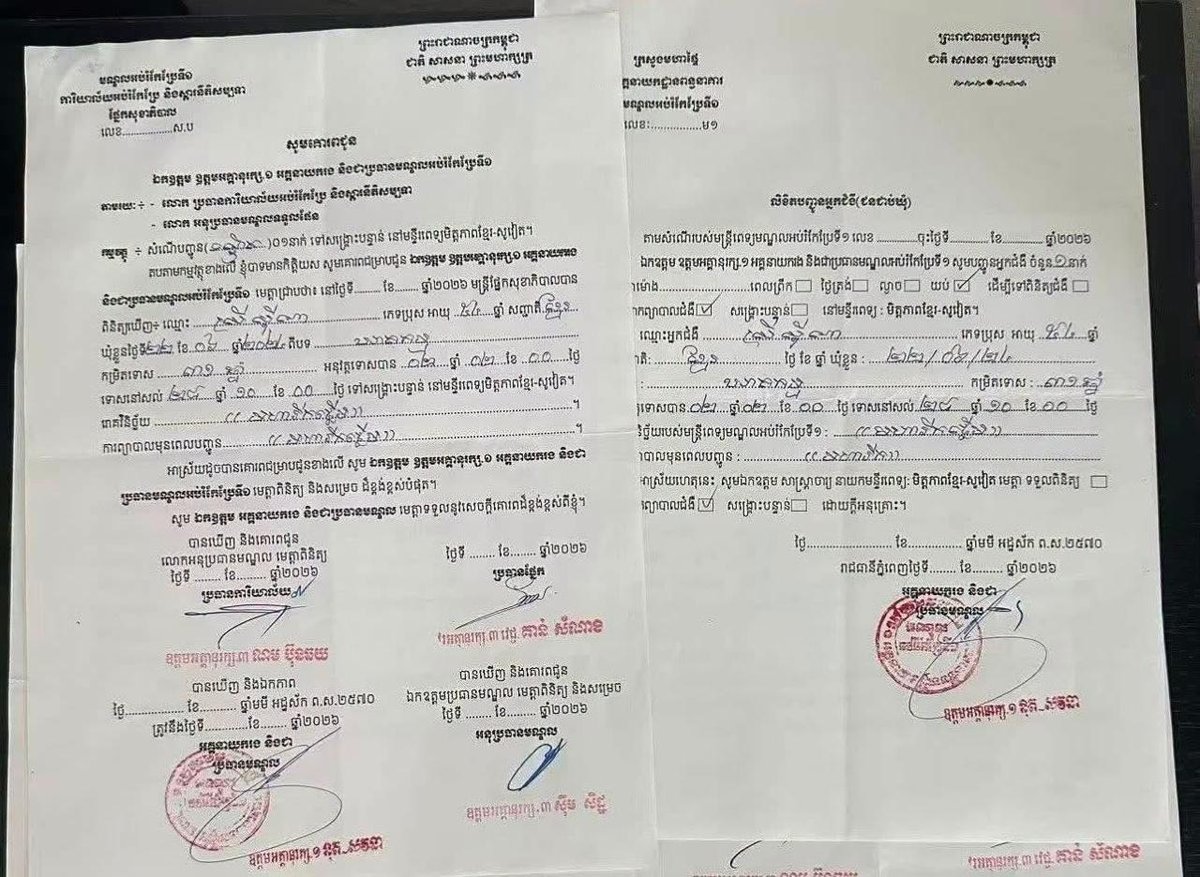 ព្រះរាជាណាចក្រកម្ពុជា
ជាតិ សាសនា ព្រះមហាក្សត្រ
មណ្ឌលអប់រំកែប្រែទី១
ការិយាល័យអប់រំកែប្រែ និងស្តារនីតិសម្បទា
ផ្នែកសុខាភិបាល
លេខ................ស.ប
សូមគោរពជូន
ឯកឧត្តម ឧត្តមអគ្គានុរក្ស.១ អគ្គនាយករង និងជាប្រធានមណ្ឌលអប់រំកែប្រែទី១
តាមរយៈ ÷ - លោក ប្រធានការិយាល័យអប់រំកែប្រែ និងស្តារនីតិសម្បទា
- លោក អនុប្រធានមណ្ឌលទទួលផែន
កម្មវត្ថុ ÷ សំណើបញ្ជូន ០១នាក់ ទៅសង្គ្រោះបន្ទាន់ នៅមន្ទីរពេទ្យមិត្តភាពខ្មែរ-សូវៀត។
តបតាមកម្មវត្ថុខាងលើ ខ្ញុំបាទមានកិត្តិយស សូមគោរពជម្រាបជូន ឯកឧត្តម ឧត្តមអគ្គានុរក្ស.១ អគ្គនាយករង
និងជាប្រធានមណ្ឌលអប់រំកែប្រែទី១ មេត្តាជ្រាបថា៖ នៅថ្ងៃទី........ ខែ........ ឆ្នាំ២០២៦ មន្ត្រីផ្នែកសុខាភិបាលបាន
ពិនិត្យឃើញ៖ ឈ្មោះ ភេទប្រុស អាយុ ៥៤ សញ្ជាតិ ខ្មែរ
ឃុំខ្លួនថ្ងៃទី ២២ ខែ ០៦ ឆ្នាំ ២០២៤ ពីបទ ឃាតកម្ម
កម្រិតទោស ៣១ ឆ្នាំ អនុវត្តទោសបាន ០២ ឆ្នាំ ០២ ខែ ០០ ថ្ងៃ
ទោសនៅសល់ ២៨ ឆ្នាំ ១០ ខែ ០០ ថ្ងៃ ទៅសង្គ្រោះបន្ទាន់ នៅមន្ទីរពេទ្យមិត្តភាពខ្មែរ-សូវៀត។
រោគវិនិច្ឆ័យ
ការព្យាបាលមុនពេលបញ្ជូន
អាស្រ័យដូចបានគោរពជម្រាបជូនខាងលើ សូម ឯកឧត្តម ឧត្តមអគ្គានុរក្ស.១ អគ្គនាយករង និងជា
ប្រធានមណ្ឌលអប់រំកែប្រែទី១ មេត្តាពិនិត្យ និងសម្រេច ដ៏ខ្ពង់ខ្ពស់បំផុត។
សូម ឯកឧត្តម អគ្គនាយករង និងជាប្រធានមណ្ឌល មេត្តាទទួលនូវសេចក្តីគោរពដ៏ខ្ពង់ខ្ពស់ពីខ្ញុំ។
បានឃើញ និងគោរពជូន
លោកអនុប្រធានមណ្ឌល មេត្តាពិនិត្យ
ថ្ងៃទី ........ ខែ......... ឆ្នាំ២០២៦
ប្រធានការិយាល័យ
ឧត្តមអគ្គានុរក្ស.៣ ណប ប៊ុនឆយ
ថ្ងៃទី ........ ខែ........ ឆ្នាំ២០២៦
ប្រធានផ្នែក
វរអគ្គានុរក្ស.៣ វេជ្ជ. គាន់ សំណាង
បានឃើញ និងឯកភាព
ថ្ងៃ.................. ខែ........... ឆ្នាំមមី អដ្ឋស័ក ព.ស.២៥៧០
ត្រូវនឹងថ្ងៃទី.............ខែ......... ឆ្នាំ២០២៦
អគ្គនាយករង និងជា
ប្រធានមណ្ឌល
ឧត្តមអគ្គានុរក្ស.១
បានឃើញ និងគោរពជូន
ឯកឧត្តមប្រធានមណ្ឌល មេត្តាពិនិត្យ និងសម្រេច
ថ្ងៃទី ........ ខែ......... ឆ្នាំ២០២៦
អនុប្រធានមណ្ឌល
ឧត្តមអគ្គានុរក្ស.៣ ស៊ឹម សិដ្ឋ
ព្រះរាជាណាចក្រកម្ពុជា
ជាតិ សាសនា ព្រះមហាក្សត្រ
ក្រសួងមហាផ្ទៃ
អគ្គនាយកដ្ឋានពន្ធនាគារ
មណ្ឌលអប់រំកែប្រែទី១
លេខៈ................ម១
លិខិតបញ្ជូនអ្នកជំងឺ(ជនជាប់ឃុំ)
តាមសំណើរបស់មន្ត្រីពេទ្យមណ្ឌលអប់រំកែប្រែទី១ លេខ ...........ចុះថ្ងៃទី............ ខែ............ ឆ្នាំ២០២៦
ឯកឧត្តម ឧត្តមអគ្គានុរក្ស.១ អគ្គនាយករង និងជាប្រធានមណ្ឌលអប់រំកែប្រែទី១ សូមបញ្ជូនអ្នកជំងឺ ចំនួន ១ នាក់
ម៉ោង.................... ពេលព្រឹក ថ្ងៃត្រង់ ល្ងាច យប់ ដើម្បីទៅពិនិត្យជំងឺ
ព្យាបាលជំងឺ សង្គ្រោះបន្ទាន់ នៅមន្ទីរពេទ្យ : មិត្តភាពខ្មែរ-សូវៀត។
ឈ្មោះអ្នកជំងឺ ភេទប្រុស អាយុ ៥៤ ឆ្នាំ
ខ្មែរ ថ្ងៃ ខែ ឆ្នាំ ឃុំខ្លួន : ២២/០៦/២៤
ឃាតកម្ម កម្រិតទោស : ៣១ ឆ្នាំ
ទោសបាន ០២ ឆ្នាំ ០២ ខែ ០០ ថ្ងៃ ទោសនៅសល់ ២៨ ឆ្នាំ ១០ ខែ ០០ ថ្ងៃ
របស់មន្ត្រីពេទ្យមណ្ឌលអប់រំកែប្រែទី១ :
មុនពេលបញ្ជូន :
អាស្រ័យហេតុនេះ សូមឯកឧត្តម សាស្ត្រាចារ្យ នាយកមន្ទីរពេទ្យ: មិត្តភាពខ្មែរ-សូវៀត មេត្តា ទទួលពិនិត្យ
ព្យាបាលជំងឺ សង្គ្រោះបន្ទាន់ ដោយក្តីអនុគ្រោះ។
ថ្ងៃ........................ ខែ................ ឆ្នាំមមី អដ្ឋស័ក ព.ស.២៥៧០
រាជធានីភ្នំពេញថ្ងៃទី........ ខែ.......... ឆ្នាំ២០២៦
អគ្គនាយករង និងជា
ប្រធានមណ្ឌល
ឧត្តមអគ្គានុរក្ស.១
វរអគ្គានុរក្ស.៣ វេជ្ជ. គាន់ សំណាង